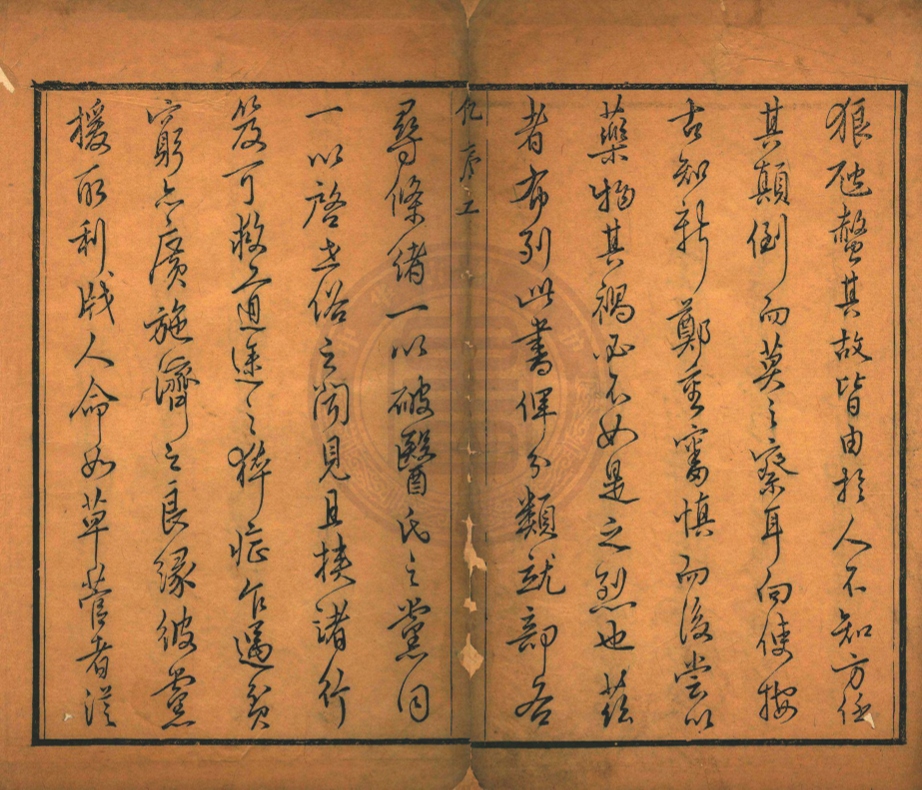 狼虺螫其故皆由於人不知方任
其顛倒而莫之察耳向使按
古知新鄭重審慎而後嘗以
藥物其禍必不如是之烈也茲
者布列此書俾分類就部各
序
尋條緒一以破醫氏之黨同
一以啓世俗之聞見且挾諸行
笈可救急道途之猝症乍遇貧
窮亦廣施濟之良緣彼黨
援取利戕人命如草菅者從